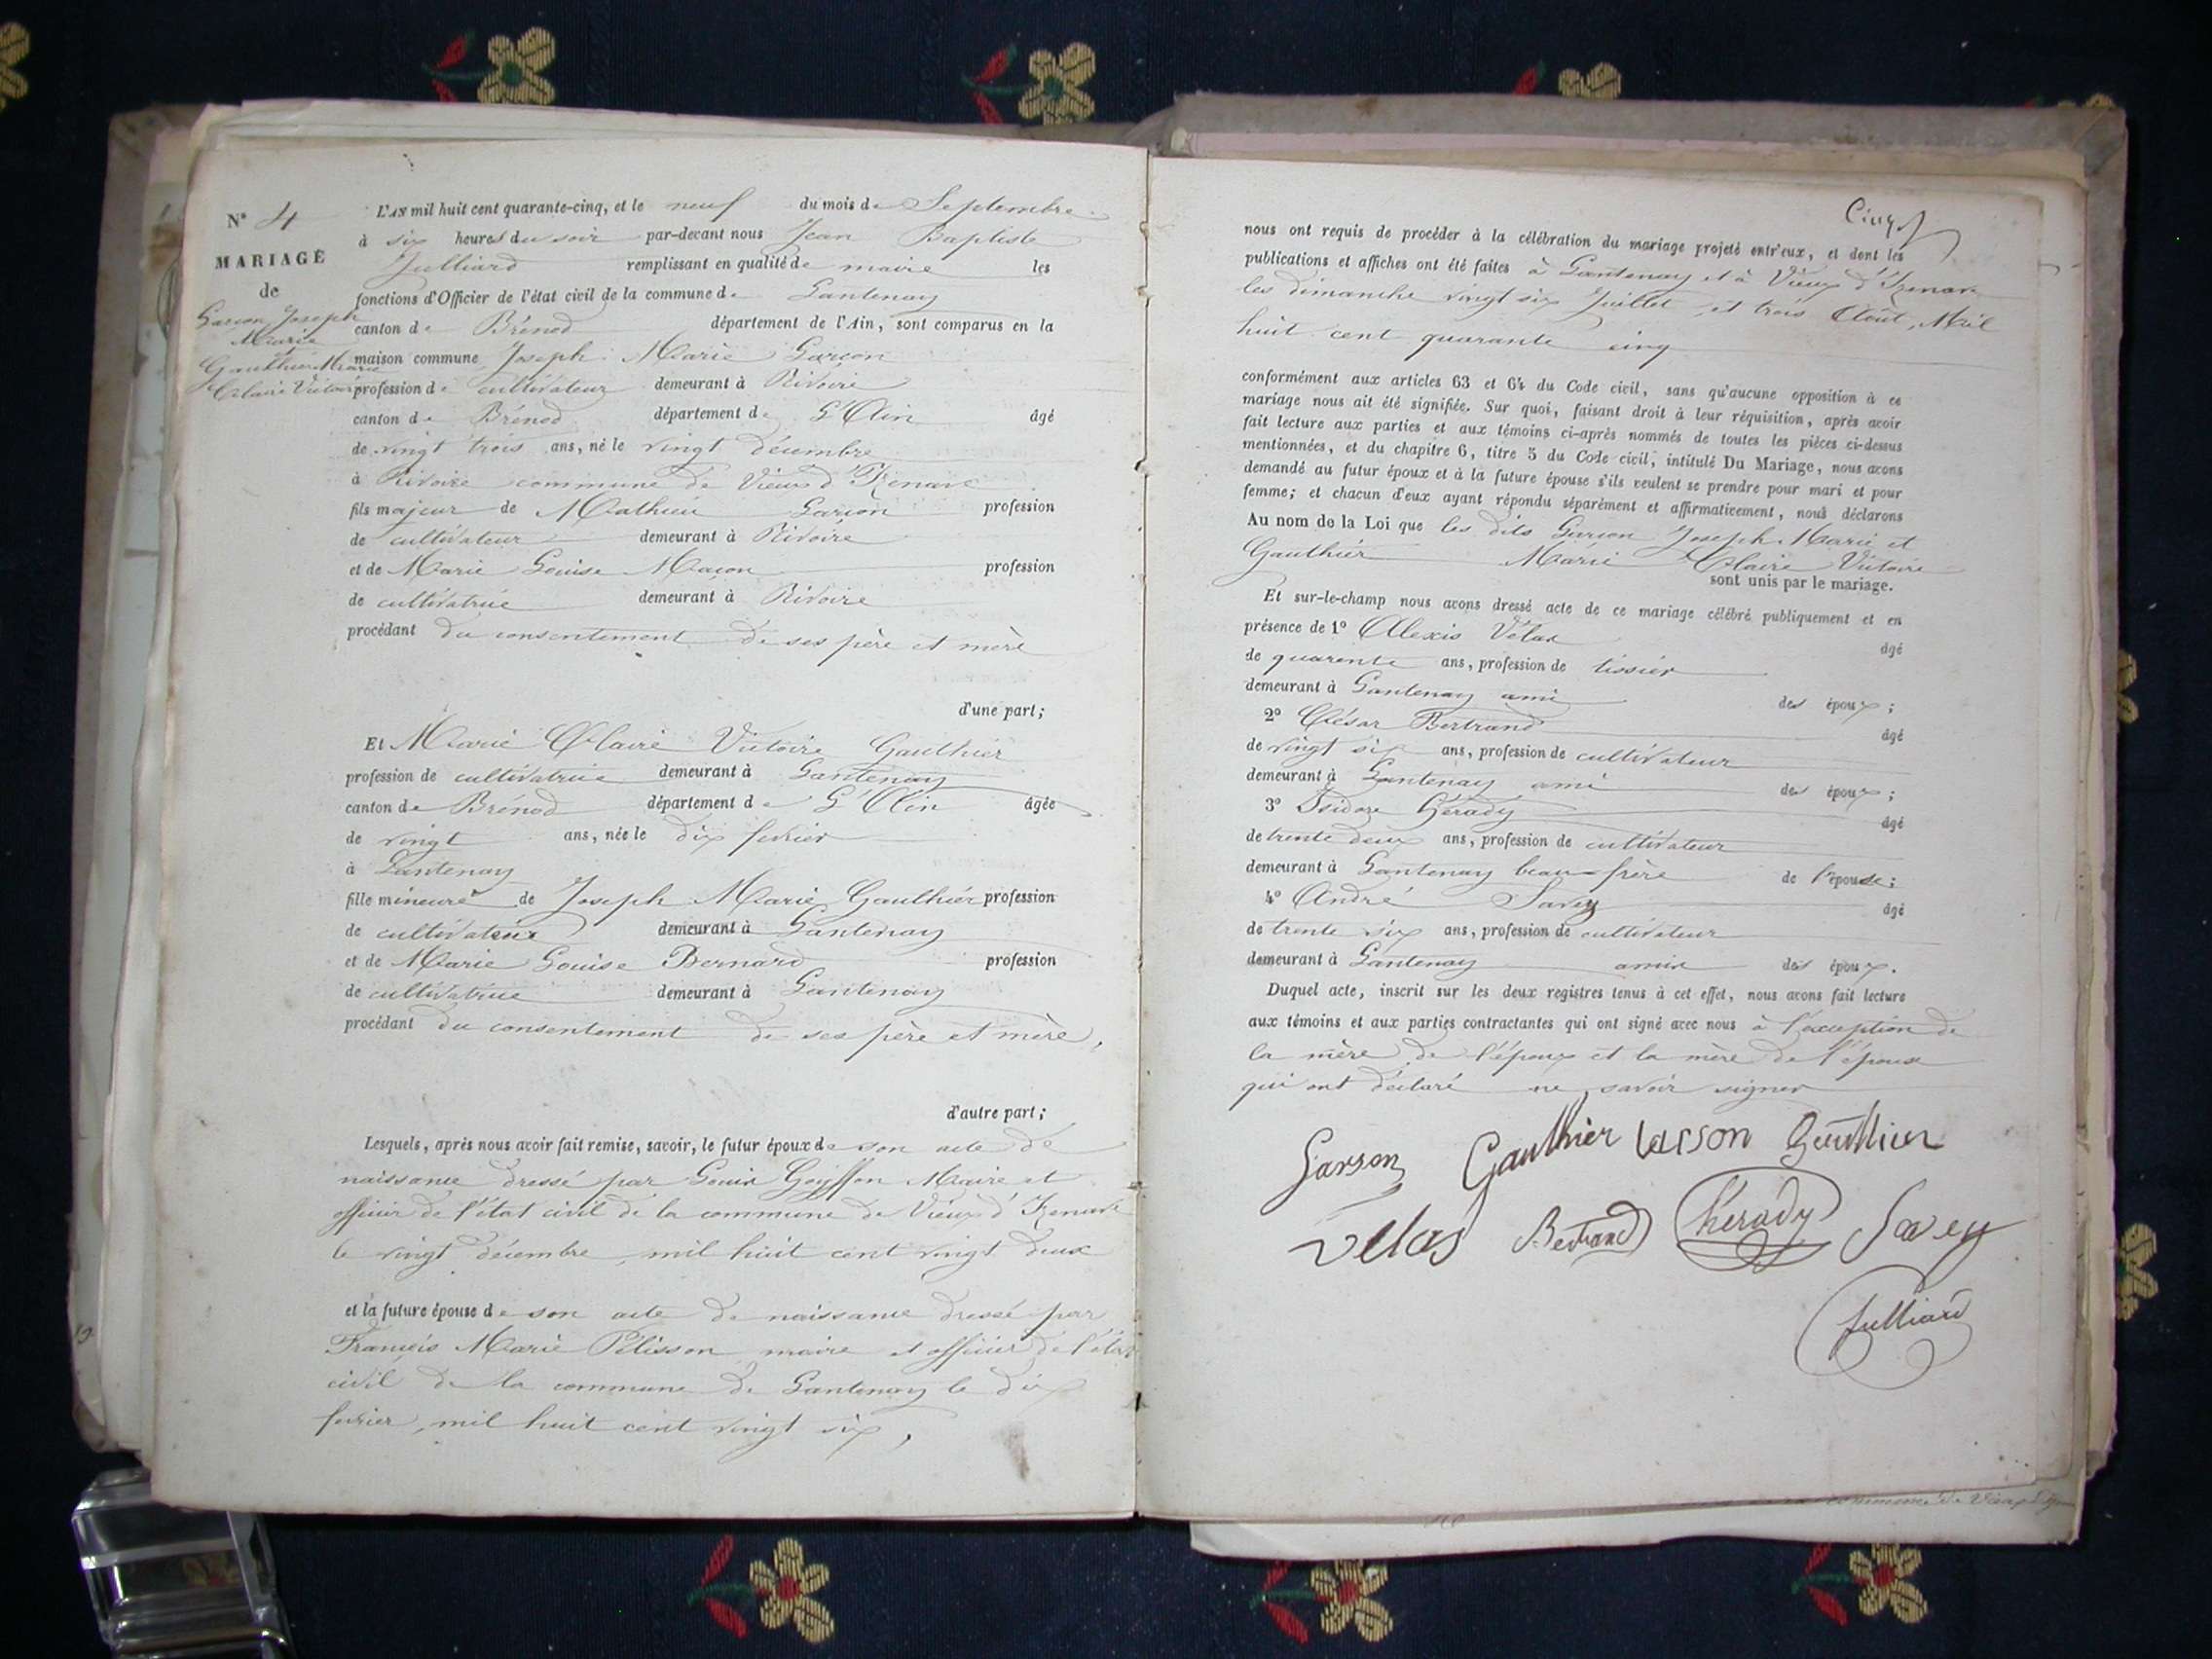 N° 4
MARIAGE
de
Garcon Joseph
Marie
et
Gauthier Marie
Claire Victoire
L'AN mil huit cent quarante-cinq, et le neuf du mois de Septembre
à six heures du soir par-devant nous Jean Baptiste
Julliard remplissant en qualité de maire les
fonctions d'Officier de l'état civil de la commune de Lantenay
canton de Brénod département de l'Ain, sont comparus en la
maison commune Joseph Marie Garcon
profession de cultivateur demeurant à Rivoire
canton de Brénod département de L'Ain âgé
de vingt trois ans, né le vingt décembre
à Rivoire commune de Vieux d'Izenave
fils majeur de Mathieu Garcon profession
de cultivateur demeurant à Rivoire
et de Marie Louise Macon profession
de cultivatrice demeurant à Rivoire
procédant du consentement de ses père et mère
d'une part;
Et Marie Claire Victoire Gauthier
profession de cultivatrice demeurant à Lantenay
canton de Brénod département de L'Ain âgée
de vingt ans, née le dix fevrier
à Lantenay
fille mineure de Joseph Marie Gauthier profession
de cultivateur demeurant à Lantenay
et de Marie Louise Bernard profession
de cultivatrice demeurant à Lantenay
procédant du consentement de ses père et mère,
d'autre part;
Lesquels, après nous avoir fait remise, savoir, le futur époux de son acte de
naissance dressé par Louis Goyffon Maire et
officier de l'état civil de la commune de Vieux d'Izenave
le vingt décembre, mil huit cent vingt deux
et la future épouse de son acte de naissance dressé par
François Marie Pélisson maire et officier de l'état
civil de la commune de Lantenay le dix
fevrier, mil huit cent vingt six,
Cinq
nous ont requis de procéder à la célébration du mariage projeté entr'eux, et dont les
publications et affiches ont été faites à Lantenay et à Vieux d'Izenave
les dimanche vingt six Juillet et trois Août, Mil
huit cent quarante cinq
conformément aux articles 63 et 64 du Code civil, sans qu'aucune opposition à ce
mariage nous ait été signifiée. Sur quoi, faisant droit à leur réquisition, après avoir
fait lecture aux parties et aux témoins ci-après nommés de toutes les pièces ci-dessus
mentionnées, et du chapitre 6, titre 5 du Code civil, intitulé Du Mariage, nous avons
demandé au futur époux et à la future épouse s'ils veulent se prendre pour mari et pour
femme; et chacun d'eux ayant répondu séparément et affirmativement, nous déclarons
Au nom de la Loi que les dits Garcon Joseph Marie et
Gauthier Marie Claire Victoire
sont unis par le mariage.
Et sur-le-champ nous avons dressé acte de ce mariage célébré publiquement et en
présence de 1° Alexis Vélas âgé
de quarente ans, profession de tissier
demeurant à Lantenay ami des époux;
2° César Bertrand âgé
de vingt six ans, profession de cultivateur
demeurant à Lantenay ami des époux;
3° Isidore Hérady âgé
de trente deux ans, profession de cultivateur
demeurant à Lantenay beau-frère de l'épouse;
4° André Savey âgé
de trente six ans, profession de cultivateur
demeurant à Lantenay amis des époux.
Duquel acte, inscrit sur les deux registres tenus à cet effet, nous avons fait lecture
aux témoins et aux parties contractantes qui ont signé avec nous à l'exception de
la mère de l'époux et la mère de l'épouse
qui ont déclaré ne savoir signer
Garson Gauthier Garson Gauthier
Velas Bertrand herady Savey
Julliard